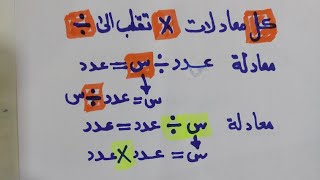 حل معادلات × تقلب الى ÷
معادلة عدد ÷ س = عدد
س = عدد ÷ س
معادلة س ÷ عدد = عدد
س = عدد × عدد